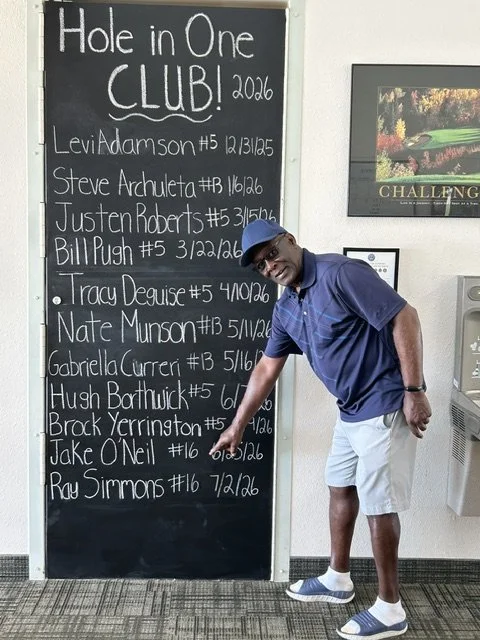 Hole in One
CLUB! 2026
Levi Adamson #5 12/31/25
Steve Archuleta #13 1/6/26
Justen Roberts #5 3/15/26
Bill Pugh #5 3/22/26
Tracy Deguise #5 4/10/26
Nate Munson #13 5/11/26
Gabriella Curreri #13 5/16/
Hugh Borthwick #5 6/
Brock Yerrington #5 /26
Jake O'Neil #16 /26
Ray Simmons #16 7/2/26
CHALLENG